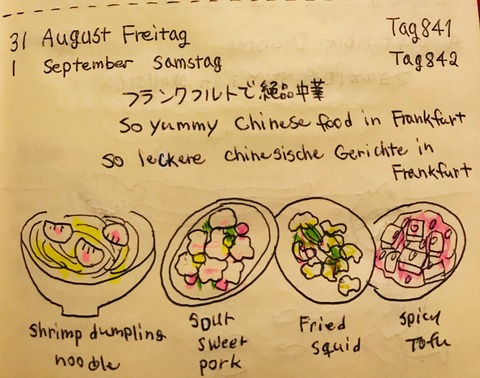 31 August Freitag Tag841
1 September Samstag Tag842
フランクフルトで絶品中華
So yummy Chinese food in Frankfurt
So leckere chinesische Gerichte in
Frankfurt
Shrimp dumpling
noodle
Sour
Sweet
pork
Fried
Squid
Spicy
Tofu